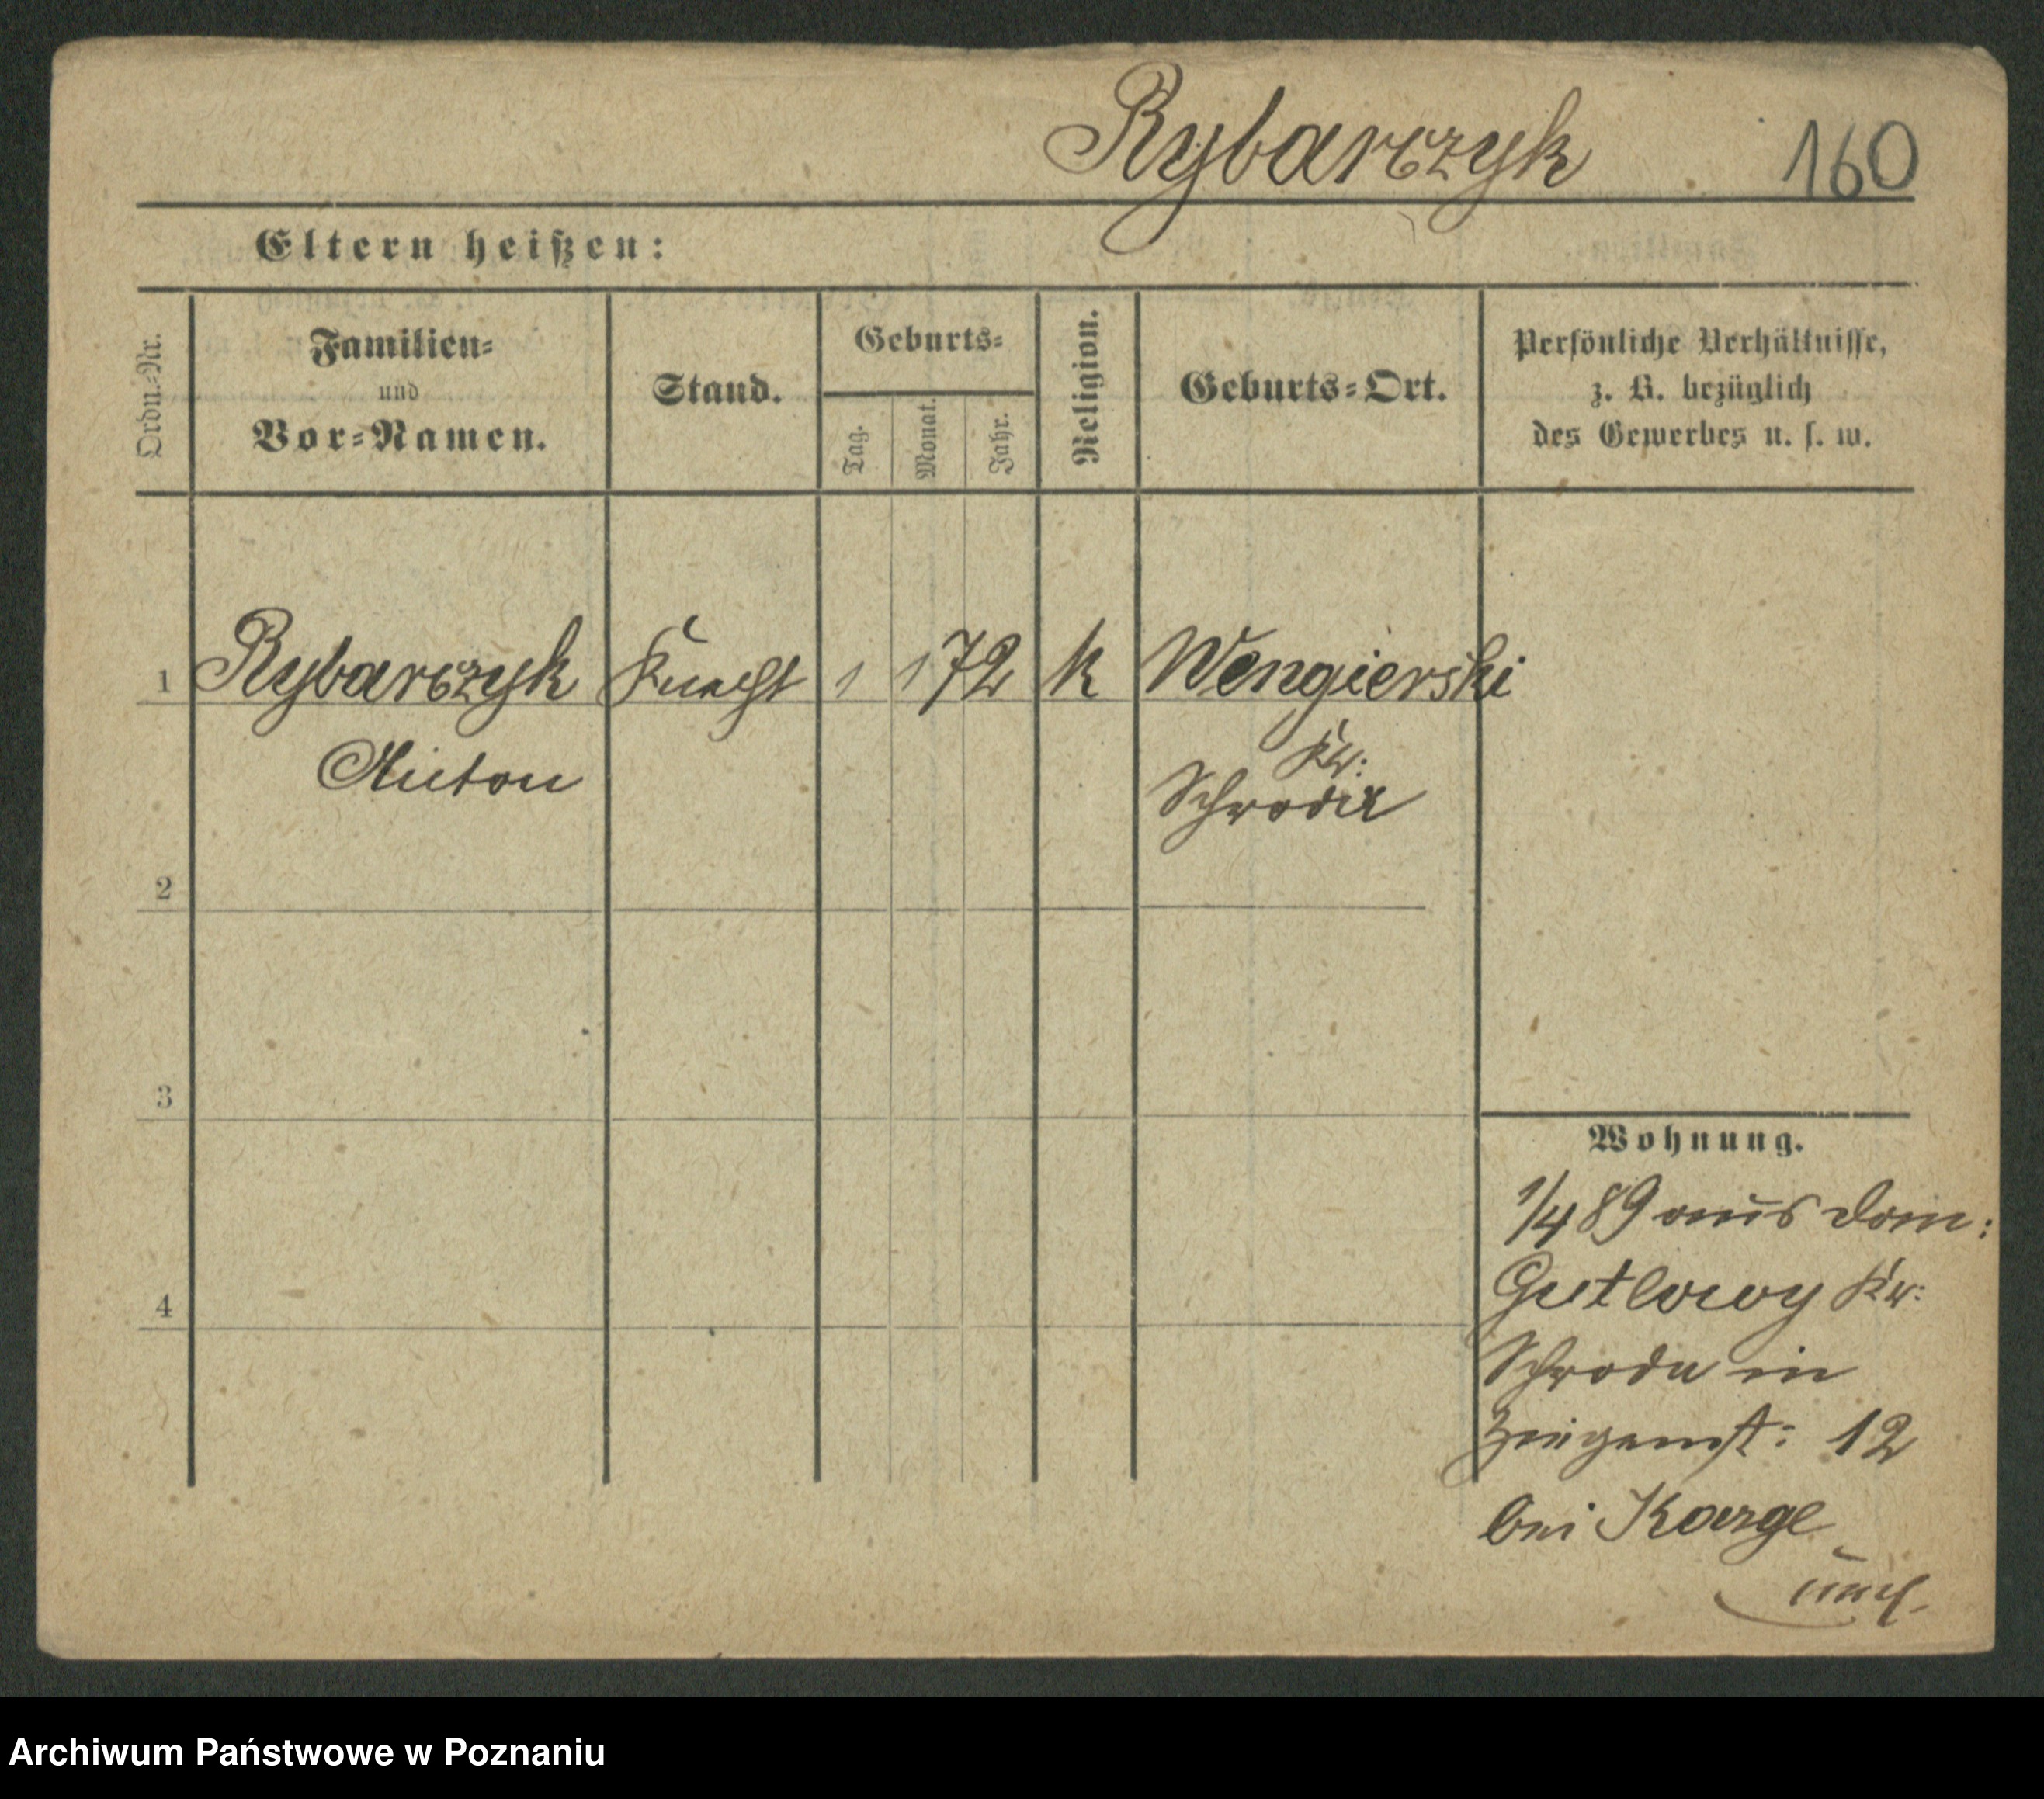 Rybarczyk 160
Eltern heißen:
Ordn.-Nr.
Familien-
und
Vor-Namen.
Stand.
Geburts-
Tag.
Monat.
Jahr.
Religion.
Geburts-Ort.
Persönliche Verhältnisse,
z. B. bezüglich
des Gewerbes u. s. w.
1 Rybarczyk Knecht 1 1 72 k Wengierski
Anton
Kr:
Schroda
2
3
4
Wohnung.
1/4 89 aus Dom:
Gutlowy Kr:
Schroda in
12
bei Karge
Archiwum Państwowe w Poznaniu